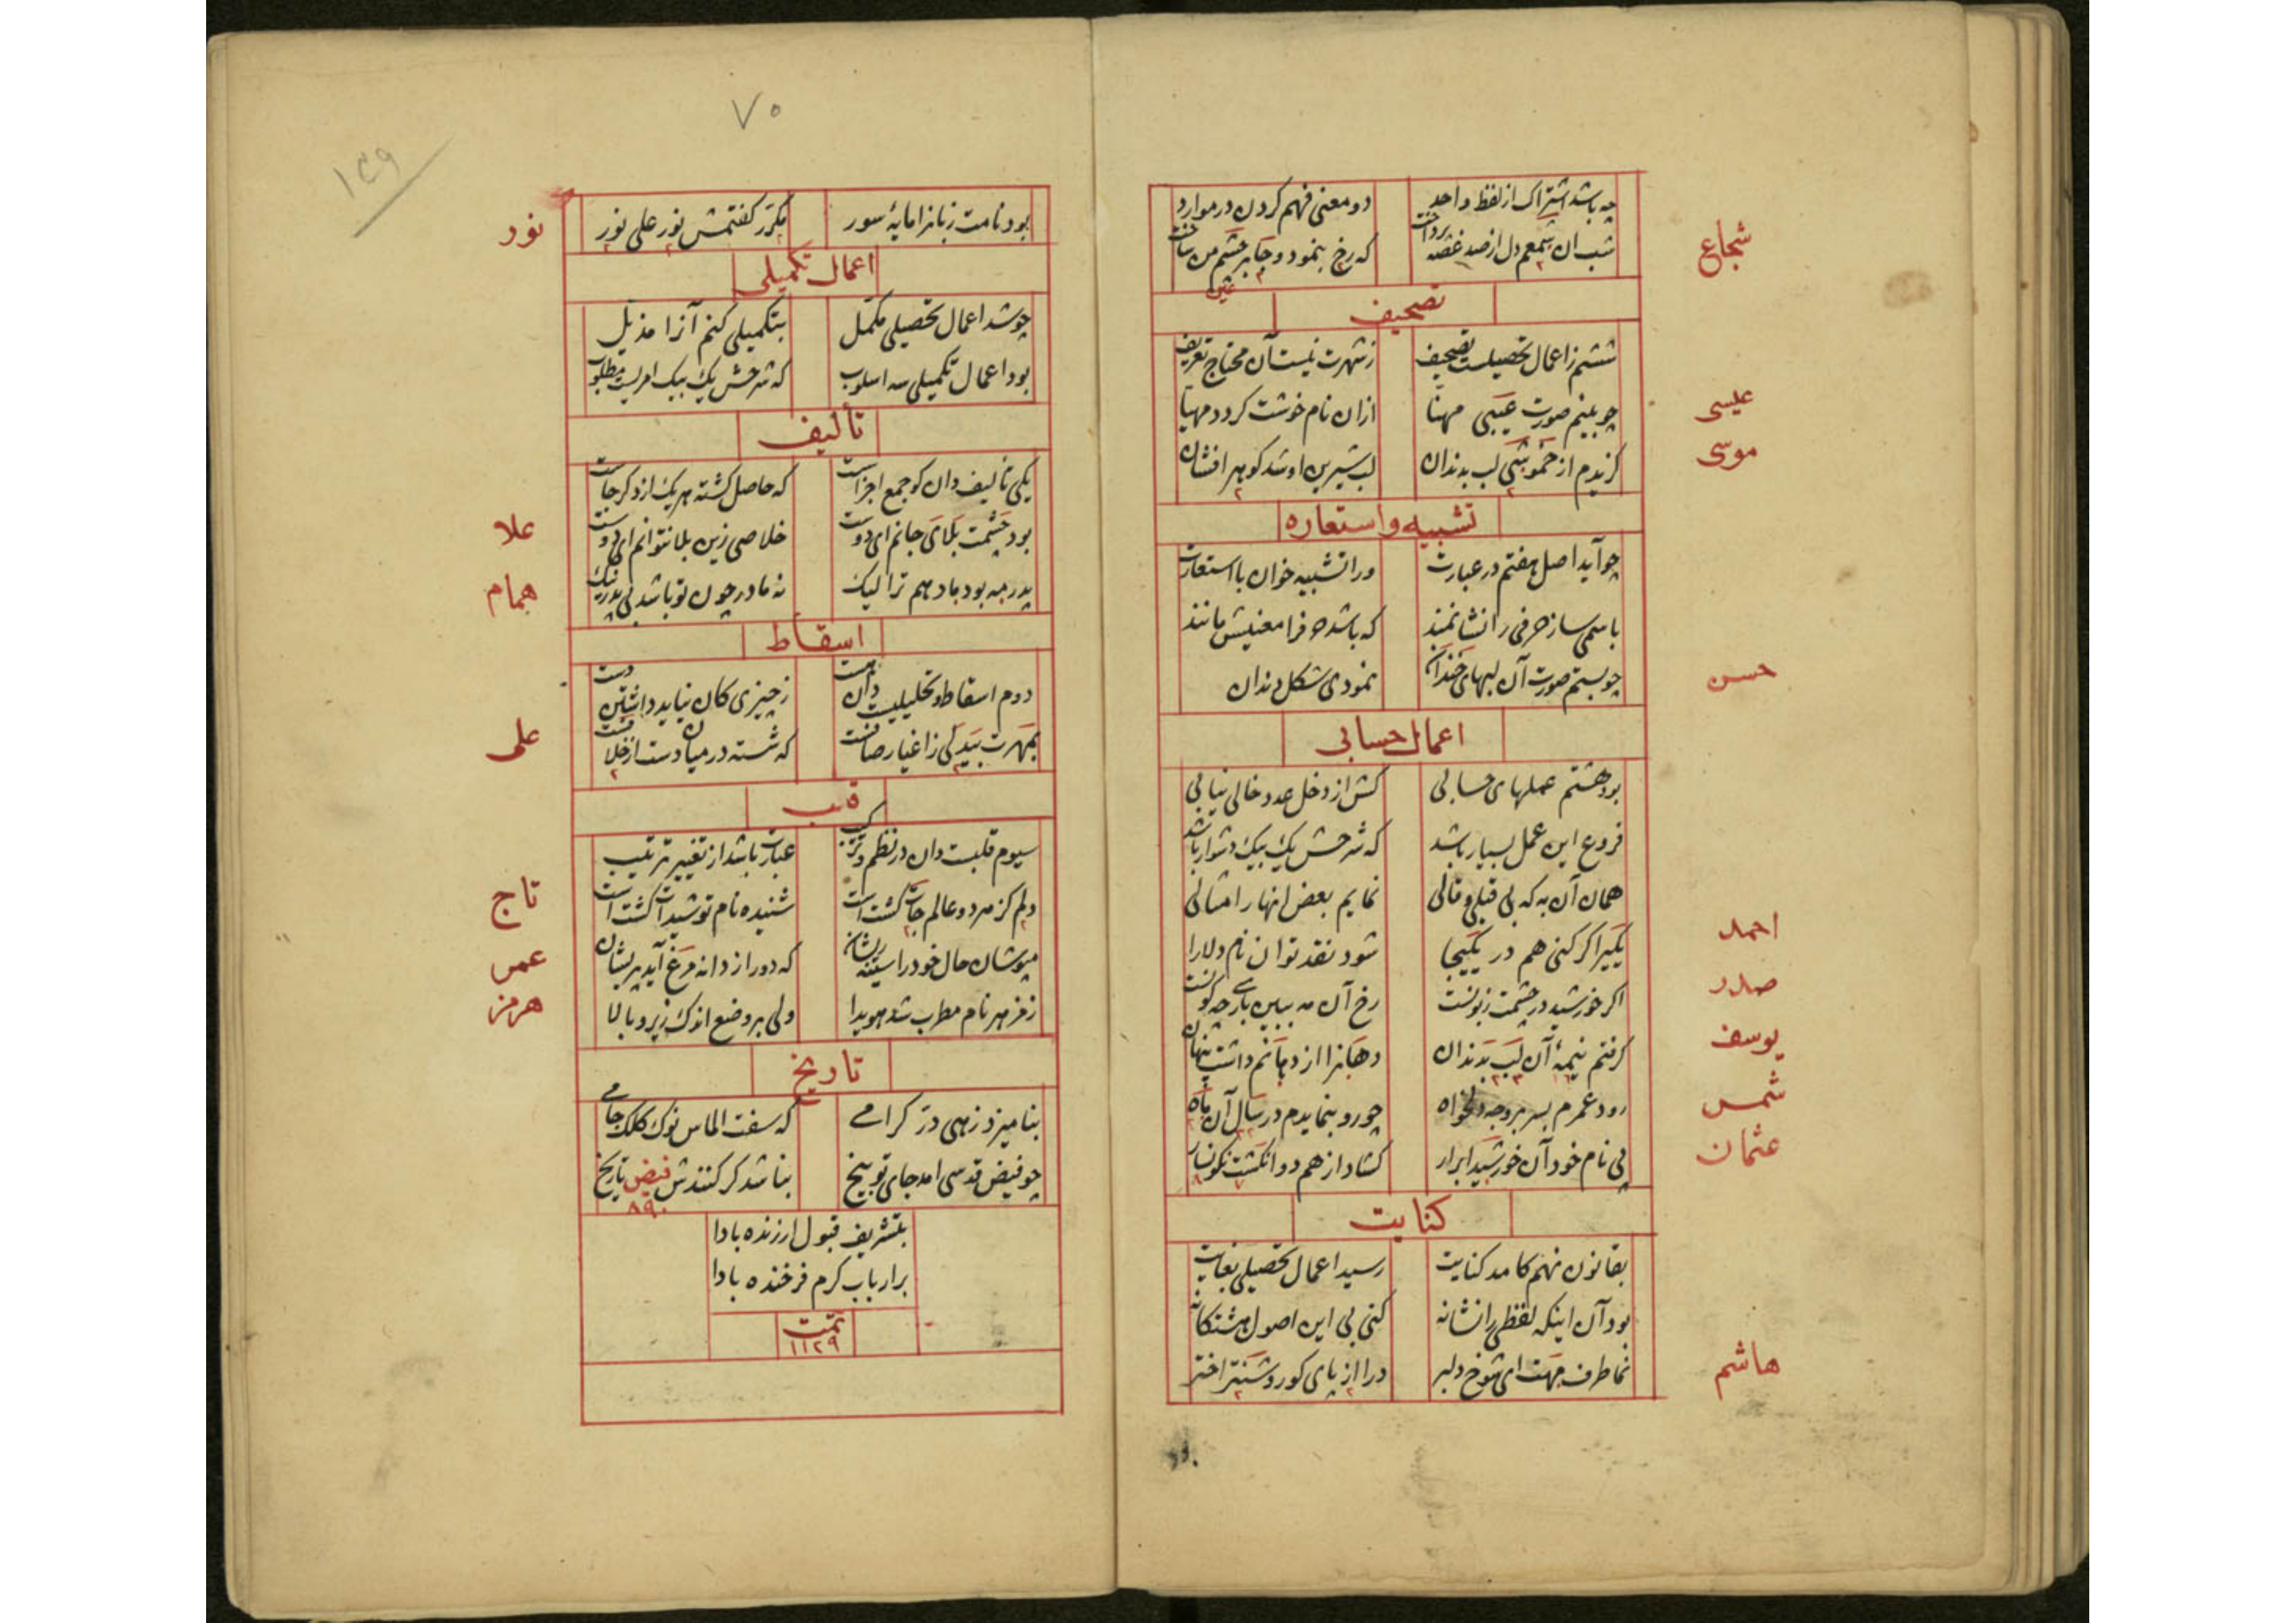 چه باشد اشتراک از لفظ واحد دو معنی فهم کردن در موارد
شجاع
شب ان شمعم دل از صد غصه پرداخت که رخ بنمود و جا بر چشم من ساخت
عین
تصحیف
ششم ز اعمال تحصیلیست تصحیف ز شهرت نیست آن محتاج تعریف
عیسی
چو بینم صورت عیبی مهنا ازان نام خوشت کردد مهیا
موسی
کزیدم از خموشی لب بدندان لب شیرین او شد کوهر افشان
تشبیه و استعاره
چو آید اصل هفتم در عبارت ورا تشبیه خوان با استعارت
باسمی ساز حرفی را نشانمند که باشد حرفرا معنیش مانند
حسن
چو بستم صورت آن لبهای خندان نمودی شکل دندان
اعمال حسابی
بود هشتم عملهای حسابی کش از دخل عدد خالی نیابی
فروع این عمل بسیار باشد که شرحش یک بیک دشوار باشد
همان آن به که بی قیل و قالی نمایم بعض انها را مثالی
احمد
یکیرا کر کنی هم در یکیجا شود نقد توان نام دلارا
صدر
اکر خورشید در چشمت زبونست رخ آن مه ببین باری چه کونست
یوسف
کرفتم نیمهٔ آن لب بدندان دهانرا از دهانم داشت پنهان
شمس
رود عمرم بسر بر وجه دلخواه چو رو بنمایدم در سال آن ماه
عثمان
پی نام خود آن خورشید ابرار کشاد از هم دو انکشت نکونسار
کنایت
بقانون نهم کامد کنایت رسید اعمال تحصیلی بغایت
بود آن اینکه لفظی را نشانه کنی بی این اصول هشتکانه
هاشم
نما طرف مهت ای شوخ دلبر درا از پای کور و شنتر اختر
۷۰
۱۳۹
نور
بود نامت زبانرا مایهٔ سور مکرر کفتمش نور علی نور
اعمال تکمیلی
چو شد اعمال تحصیلی مکمل بتکمیلی کنم آنرا مذیل
بود اعمال تکمیلی سه اسلوب که شرحش یک بیک امریست مطلوب
تألیف
یکی تألیف دان کو جمع اجزاست که حاصل کشته هر یک از دکر جاست
علا
بود چشمت بلای جانم ای دوست خلاصی زین بلا نتوانم ای دوست
همام
پدر مه بود مادر هم ترا لیک نه مادر چون تو باشد نی پدر نیک
اسقاط
دوم اسقاط و تحلیلیست دان زچیزی کان نیاید داشتن دست
علی
بمهرت بیدلی ز اغیار صافست که شسته در میان دست از خلافست
قلب
سیوم قلبست دان در نظم و ترکیب عبارت باشد از تغییر ترتیب
تاج
دلم کز مهر دو عالم جات کشتست شنیده نام تو شیدات کشتست
عمر
مپوشان حال خود را سینه ریشان که دور از دانه مرغ آید پریشان
هرمز
زمزمهر نام مطرب شد هویدا ولی بر وضع اندک زیر و بالا
تاریخ
بنامیزد زهی در کرامی که سفت الماس نوک کلک جامی
چو فیض قدسی امد جای توبیخ نباشد کر کنندش فیض تاریخ
۸۹۰
بتشریف قبول ارزنده بادا
بر ارباب کرم فرخنده بادا
تمت
۱۱۲۹